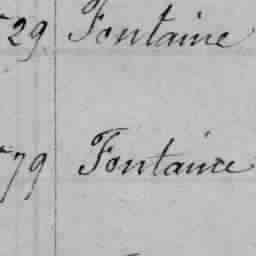 29 Fontaine
79 Fontaine